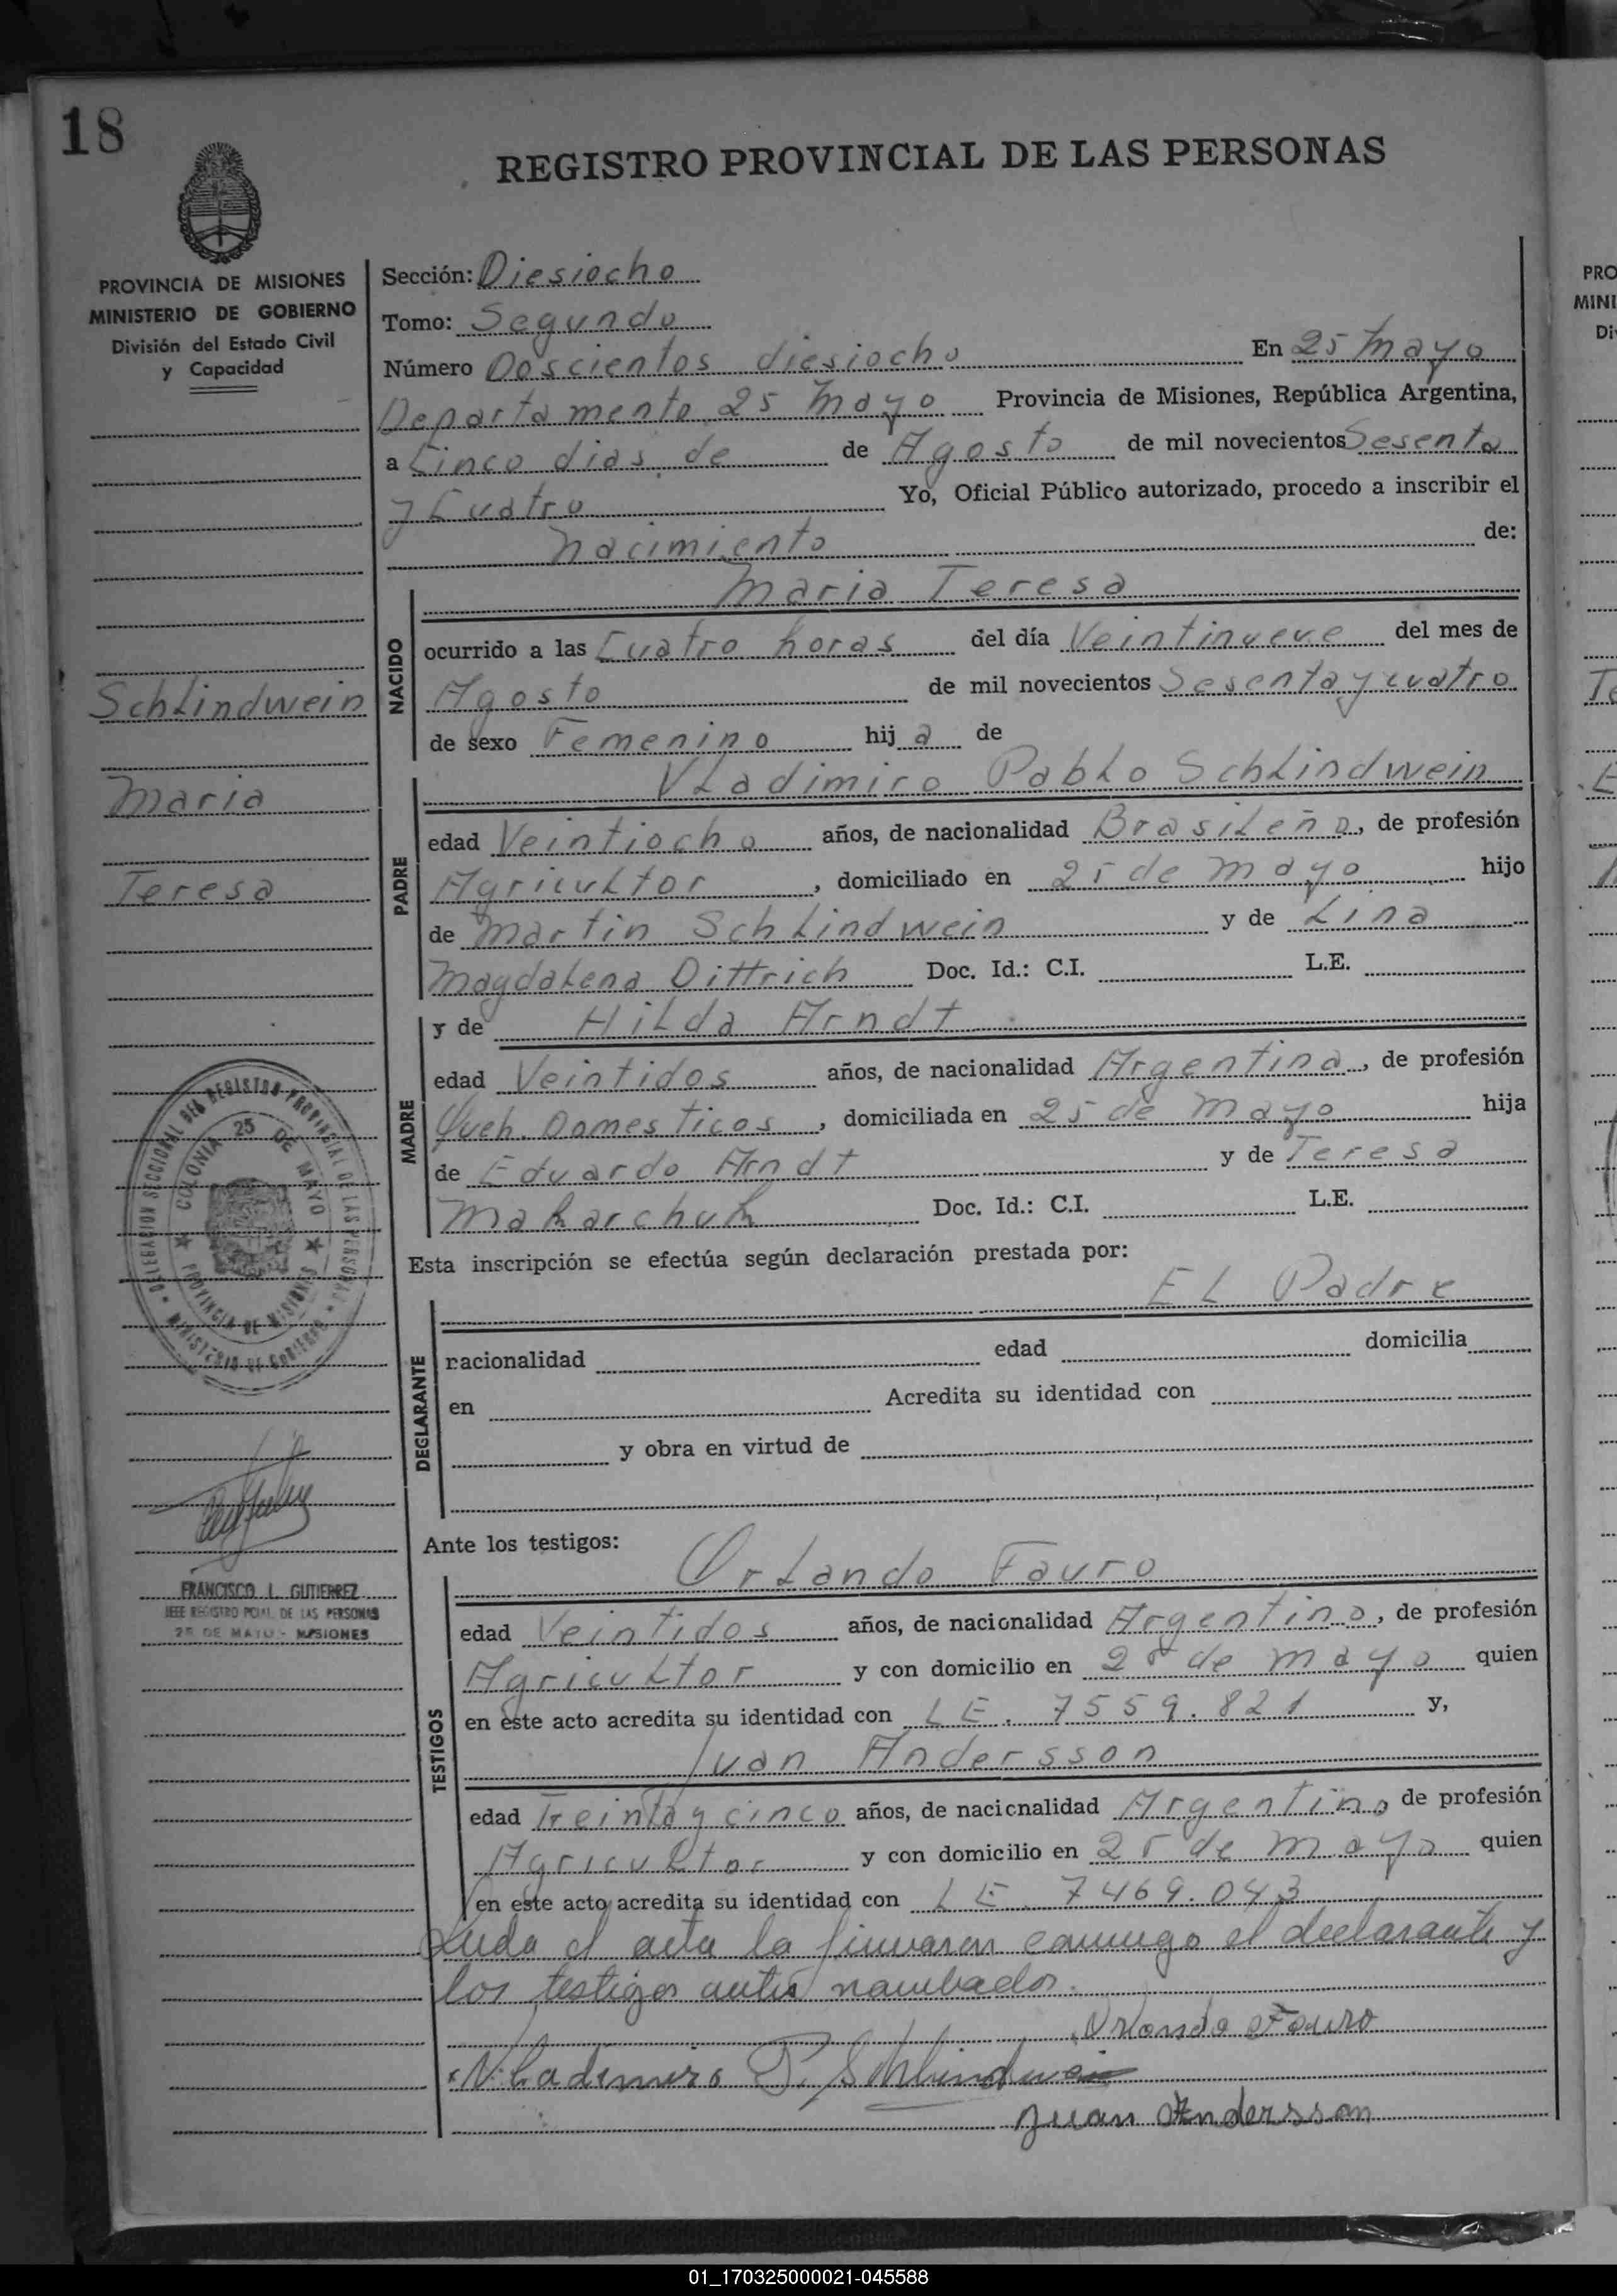 18
REGISTRO PROVINCIAL DE LAS PERSONAS
PROVINCIA DE MISIONES
MINISTERIO DE GOBIERNO
División del Estado Civil
y Capacidad
Sección: Diesiocho
Tomo: Segundo
Número Doscientos diesiocho En 25 Mayo
Departamento 25 Mayo Provincia de Misiones, República Argentina,
a Cinco dias de de Agosto de mil novecientos Sesenta
y Cuatro Yo, Oficial Público autorizado, procedo a inscribir el
nacimiento de:
Maria Teresa
NACIDO
ocurrido a las Cuatro horas del día Veintinueve del mes de
Agosto de mil novecientos Sesenta y cuatro
de sexo Femenino hija de
Schlindwein
Maria
Teresa
Vladimiro Pablo Schlindwein
PADRE
edad Veintiocho años, de nacionalidad Brasileña, de profesión
Agricultor, domiciliado en 25 de mayo hijo
de Martin Schlindwein y de Lina
Magdalena Dittrich Doc. Id.: C.I. L.E.
y de Hilda Arndt
MADRE
edad Veintidos años, de nacionalidad Argentina, de profesión
Queh. Domesticos, domiciliada en 25 de mayo hija
de Eduardo Arndt y de Teresa
Makarchuk Doc. Id.: C.I. L.E.
DELEGACION SECCIONAL DEL REGISTRO PROVINCIAL DE LAS PERSONAS
MINISTERIO DE GOBIERNO
COLONIA 25 DE MAYO
PROVINCIA DE MISIONES
Esta inscripción se efectúa según declaración prestada por:
El Padre
DECLARANTE
nacionalidad edad domicilia
en Acredita su identidad con
y obra en virtud de
FRANCISCO L. GUTIERREZ
JEFE REGISTRO PCIAL. DE LAS PERSONAS
25 DE MAYO - MISIONES
Ante los testigos:
Orlando Fauro
TESTIGOS
edad Veintidos años, de nacionalidad Argentino, de profesión
Agricultor y con domicilio en 25 de mayo quien
en este acto acredita su identidad con LE. 7559.821 y,
Juan Andersson
edad Treinta y cinco años, de nacionalidad Argentino de profesión
Agricultor y con domicilio en 25 de mayo quien
en este acto acredita su identidad con LE 7469.043
Leida el acta la firmaron conmigo el declarante y
los testigos antes nombados.
Orlando Fauro
Vladimiro P. Schlindwein
Juan Andersson
PRO
MINI
Di
01_170325000021-045588